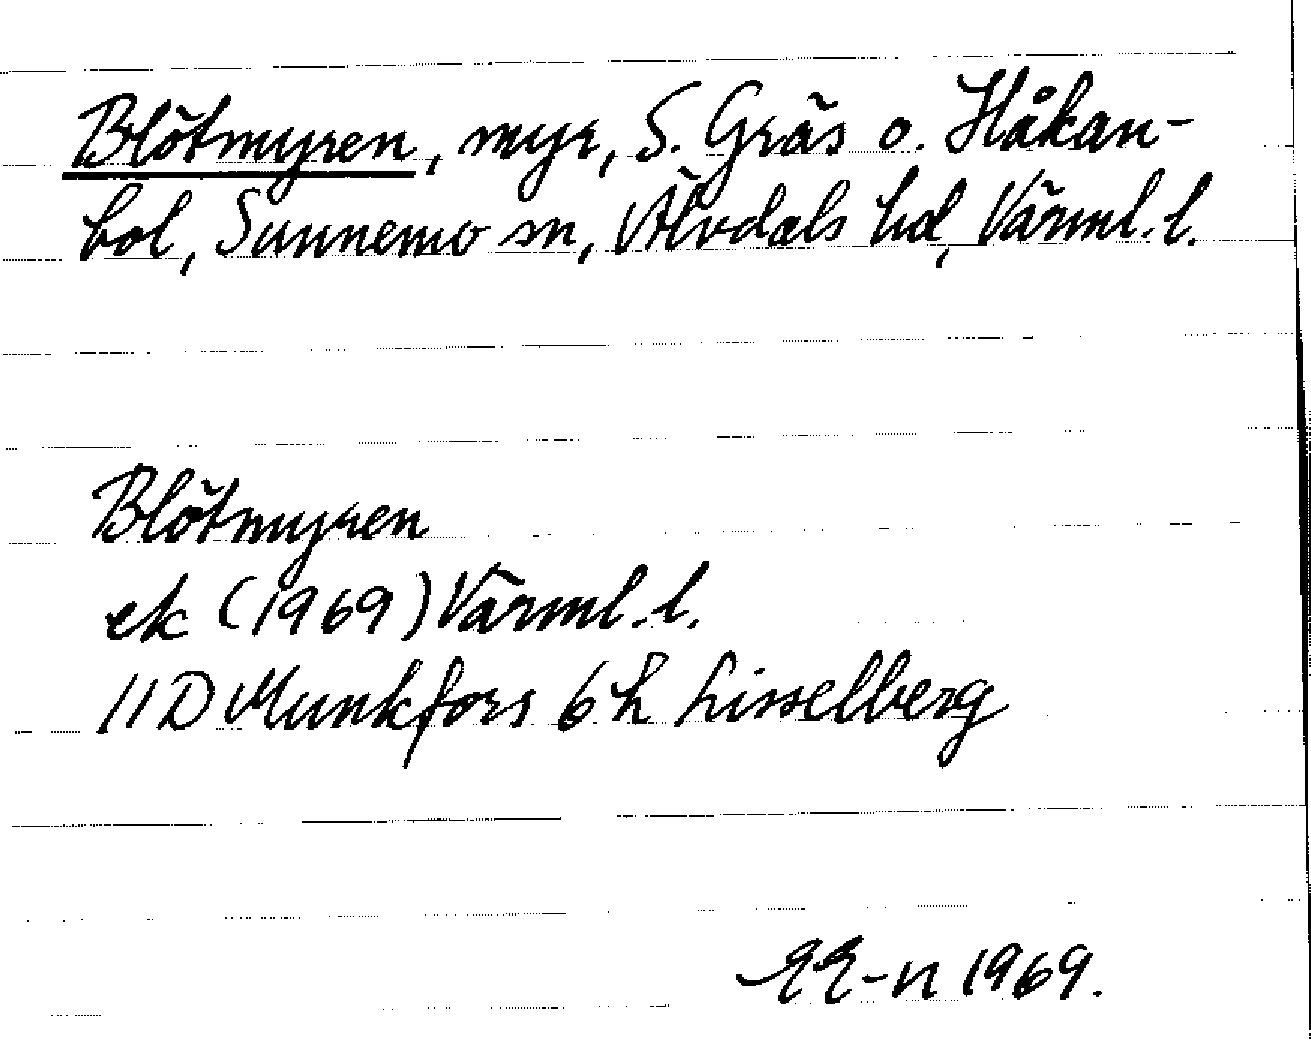 Blötmyren, myr, S. Gräs o. Håkan-
bol, Sunnemo sn, Älvdals hd, Värml. l.
Blötmyren
ek (1969) Värml. l.
11D Munkfors 6h Lisselberg
EE-n 1969.